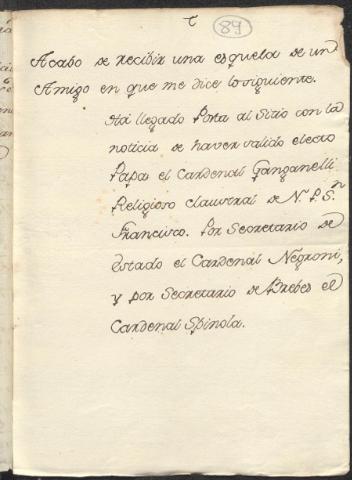 89
Acabo de recibir una esquela de un
Amigo en que me dice lo siguiente.
Há llegado Posta al Sitio con la
noticia de haver salido electo
Papa el Cardenal Ganganelli
Religioso claustral de N. P. Sn
Francisco. Por Secretario de
Estado el Cardenal Negroni,
y por Secretario de Brebes el
Cardenal Spinola.